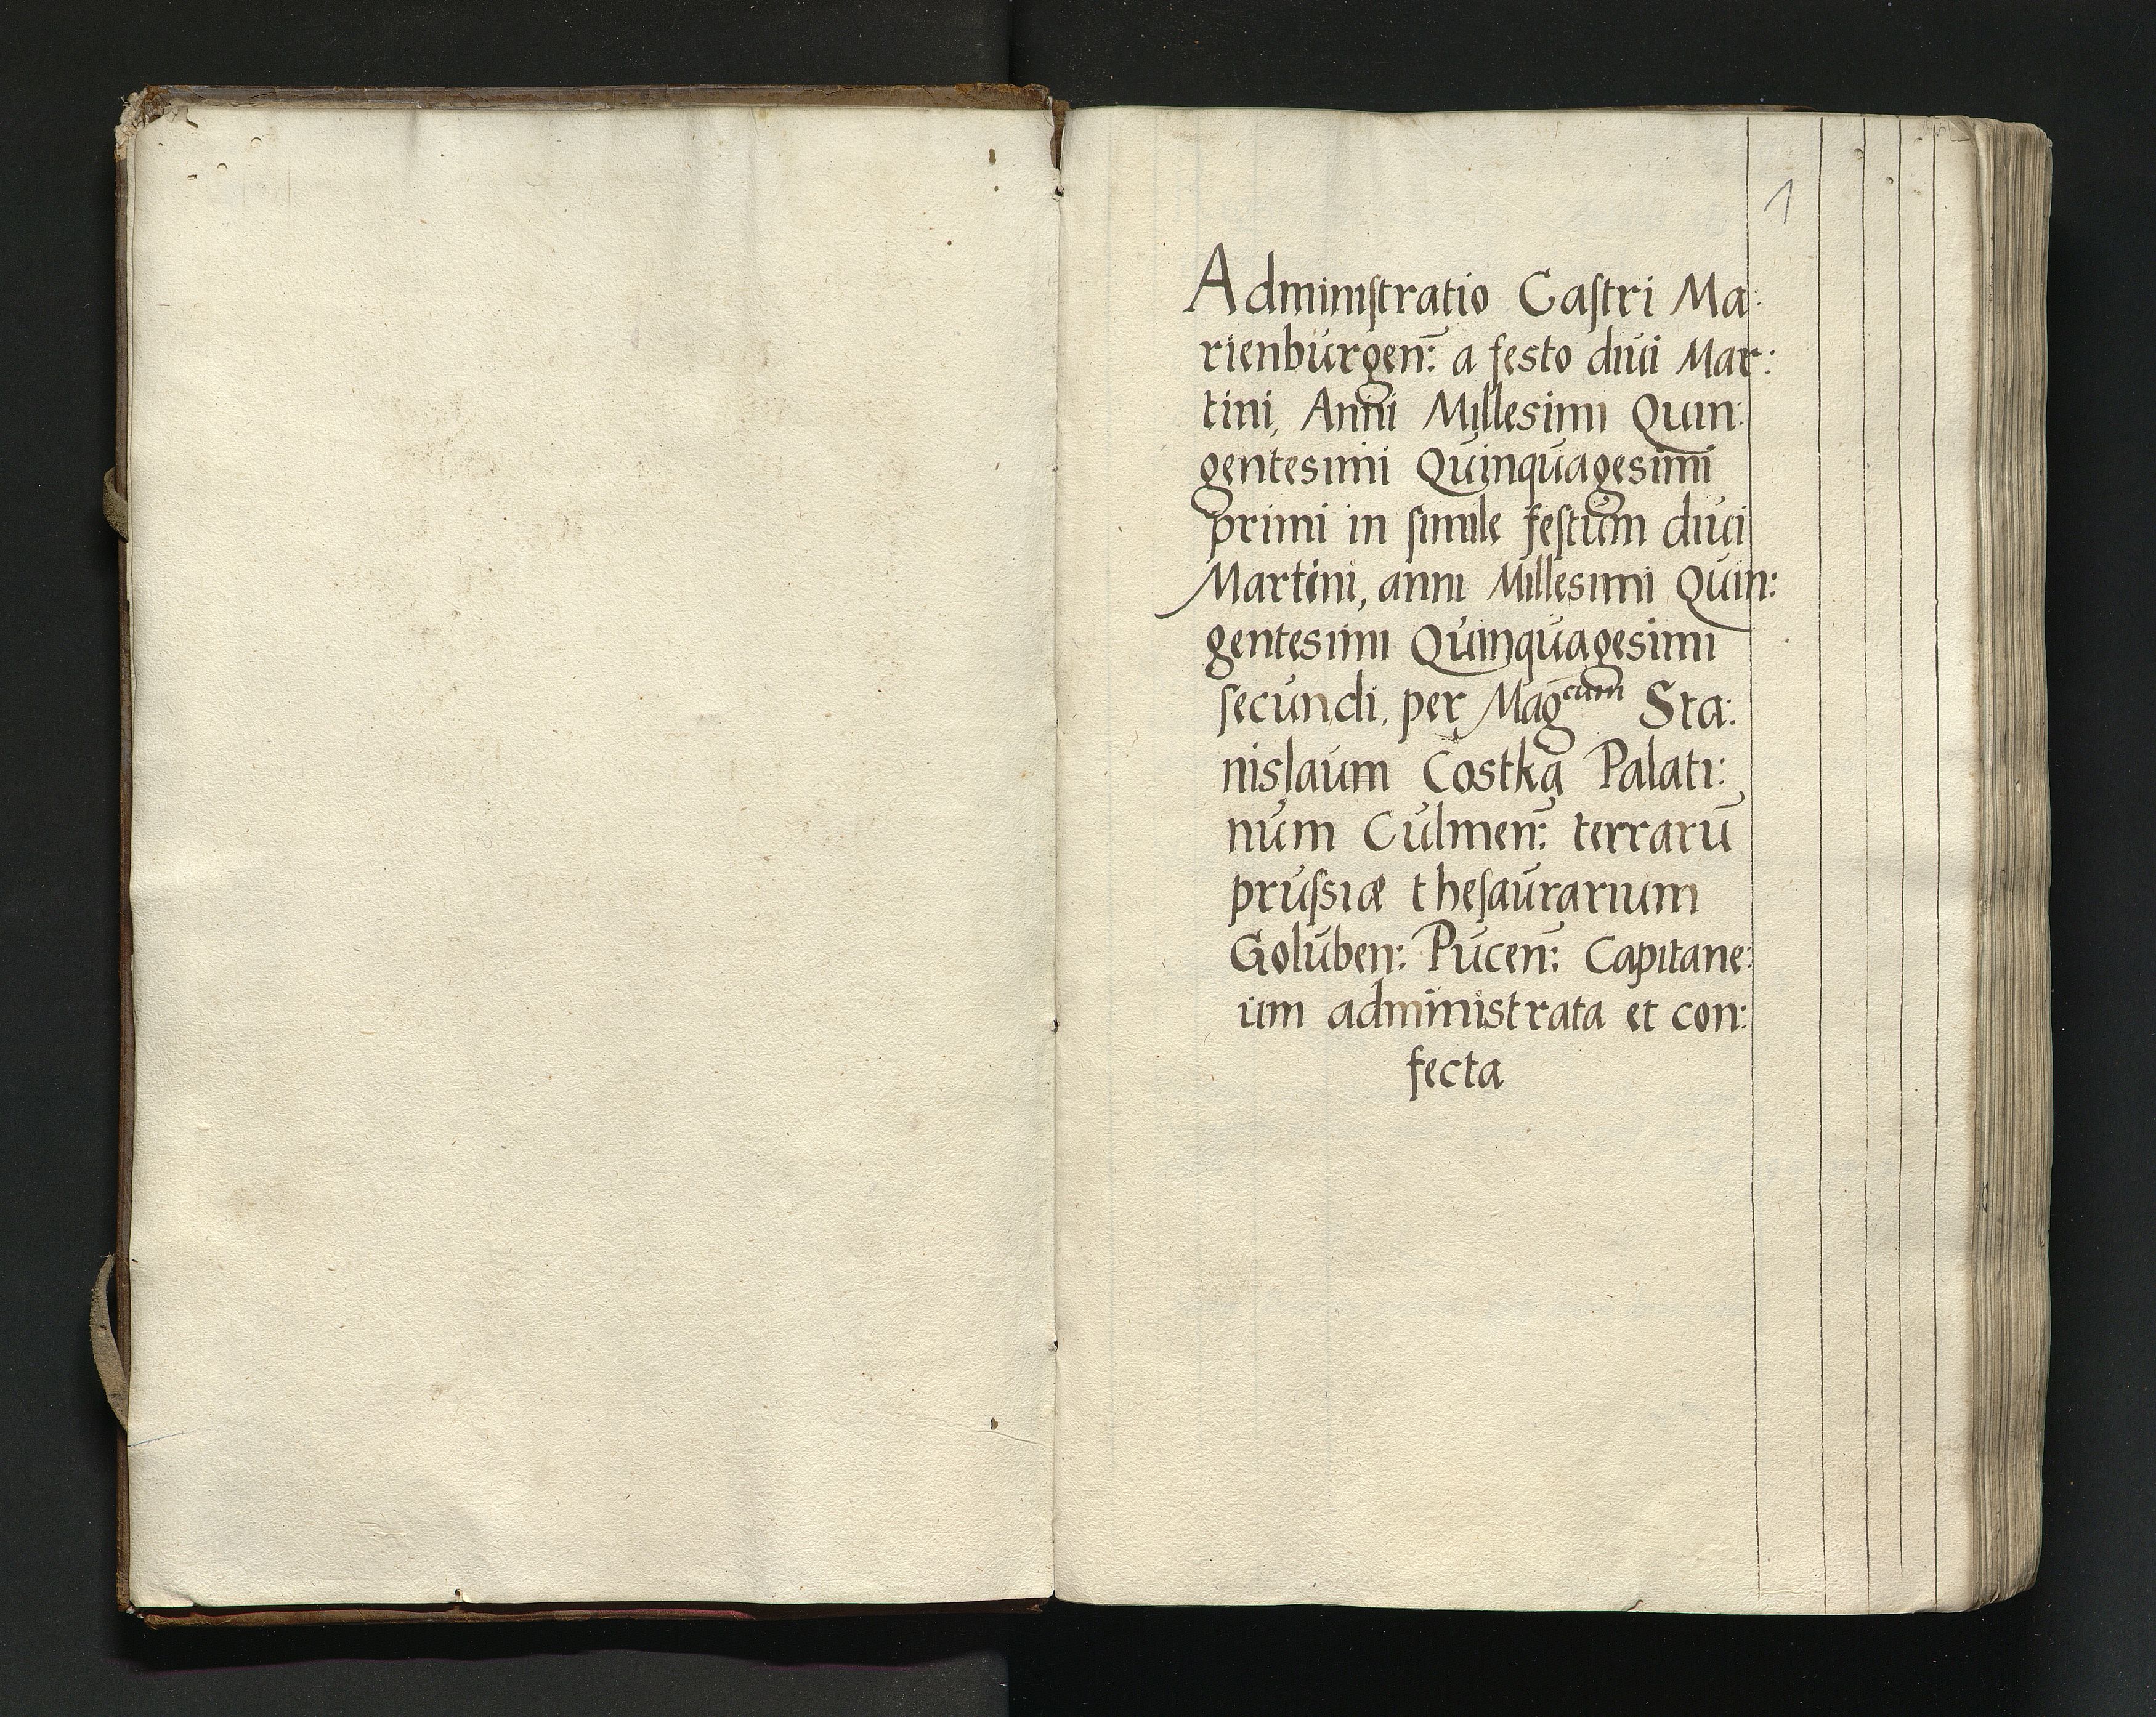 1
Adminiſtratio Caſtri Ma:
rienburgen: a festo diui Mar:
tini, Anni Millesimi Quin:
gentesimi Quinquagesimi
primi in ſimile feſtum diui
Martini, anni Millesimi Quin:
gentesimi Quinquagesimi
ſecundi, per Magcum Sta:
nislaum Costka Palati:
num Culmen: terrarū
pruſsiæ theſaurarium
Goluben: Pucen: Capitane:
um administrata et con:
fecta